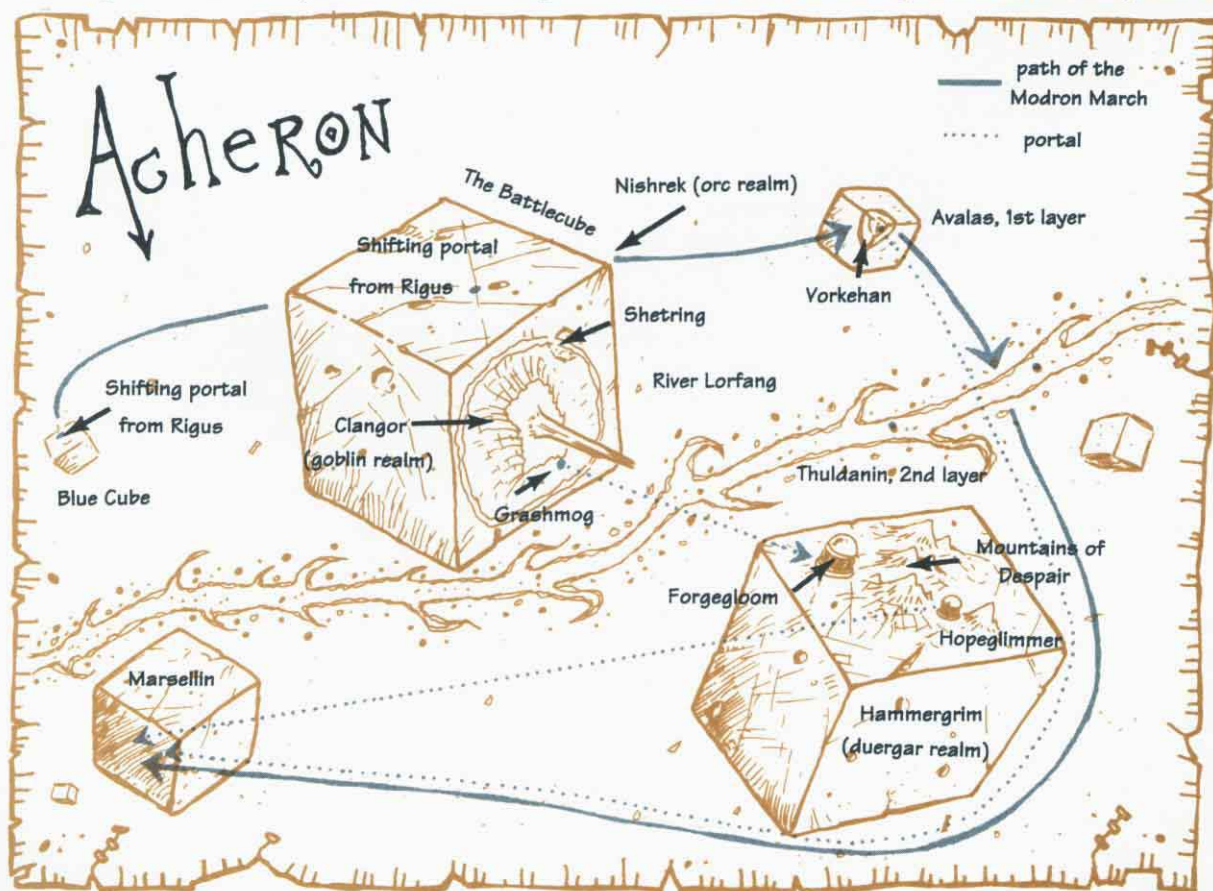 Acheron
path of the
Modron March
portal
The Battlecube
Nishrek (orc realm)
Avalas, 1st layer
Shifting portal
from Rigus
Vorkehan
Shetring
River Lorfang
Shifting portal
from Rigus
Clangor
(goblin realm)
Blue Cube
Grashmog
Thuldanin, 2nd layer
Mountains of
Despair
Forgegloom
Hopeglimmer
Marsellin
Hammergrim
(duergar realm)